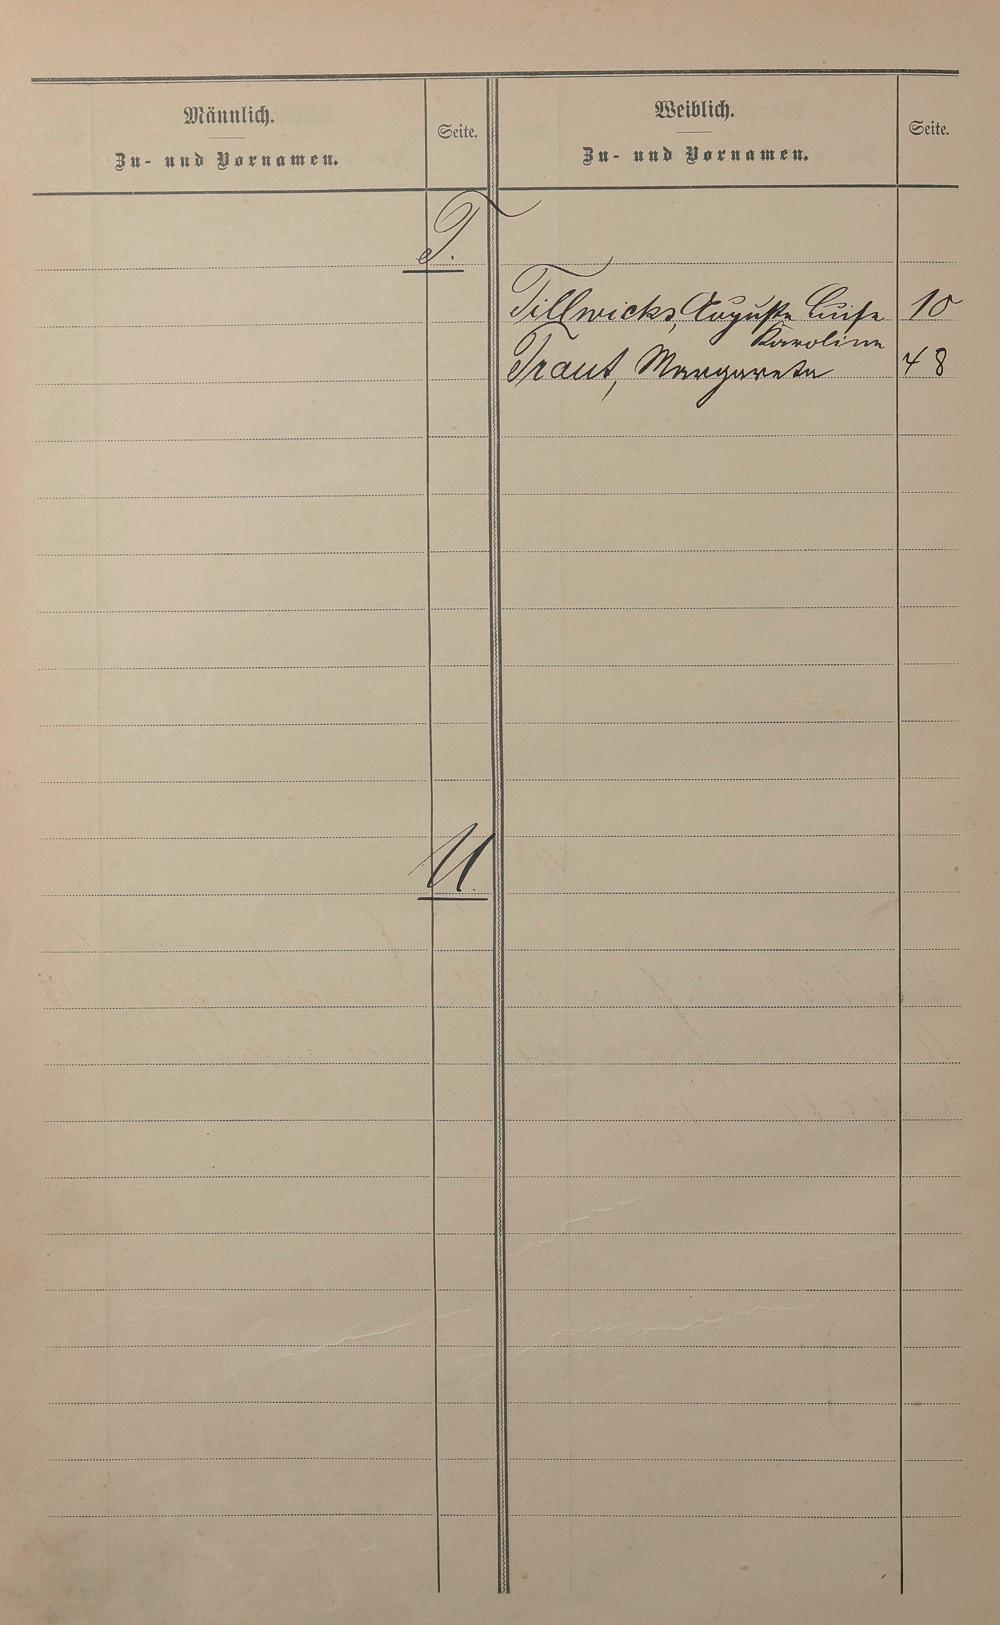 Männlich.
Zu- und Vornamen.
Seite.
Weiblich.
Zu- und Vornamen.
Seite.
T.
Tillwicks, Auguste Luise 10
Karoline
Traut, Margareta 48
U.